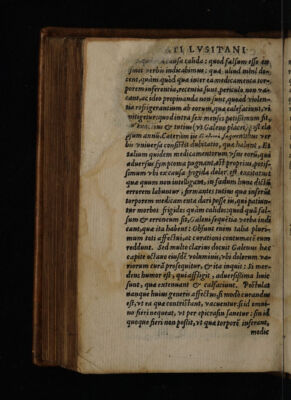 ATI LVSITANI
causa calida: quod falsum esse ex
ipsis verbis indicabimus: quæ aliud mini do-
cent, quàm quòd quæ inter ea medicamenta tor-
porem inferentia, recentia sunt, periculo non va-
cant, ac ideo propinanda non sunt, quòd violen-
tia refrigerantium ab eorum, quæ calefaciunt,
mitigetur: quod intra sex menses potissimum fit,
ac tutius (vt Galeno placet) post
annū. Cæterim in Galeni sequentibus ver
bis vniuersa consistit dubitatio, quæ habent, Et
talium quidem medicamentorum vsus eorū, quæ
aduersus symptoma pugnant, aut proprius, potis-
simum vbi ex causa frigida dolor est excitatus
quæ quum non intelligant, in eundem hunc dictū
errorem labuntur, firmantes tutius quæ inserūt
torporem medicamenta dari posse iis, qui patiun-
tur morbos frigidos quàm calidos: quod quā fal-
sum & erroneum sit, Galeni sequētia verba indi
cant, quæ ita habent: Obsunt enim talia pluri-
mum toti affectui, ac curationi contumacē eum
reddunt. Sed multo clarius docuit Galenus hoc
capite octauo eiusdē voluminis, vbi dolorum va-
riorum curā prosequitur, & ita inquit: Si mor-
dens humor est, qui affligit, aduersissima huic
sunt, quæ extenuant & calfaciunt. Postulat
nanque huius generis affectus, si modo curandus
est, vt ea quæ contristant, vacuentur: si id omni-
no fieri nequeat, vt per epicrasin sanetur: sin id
quoque fieri non possit, vt quæ torporē inferant,
medic